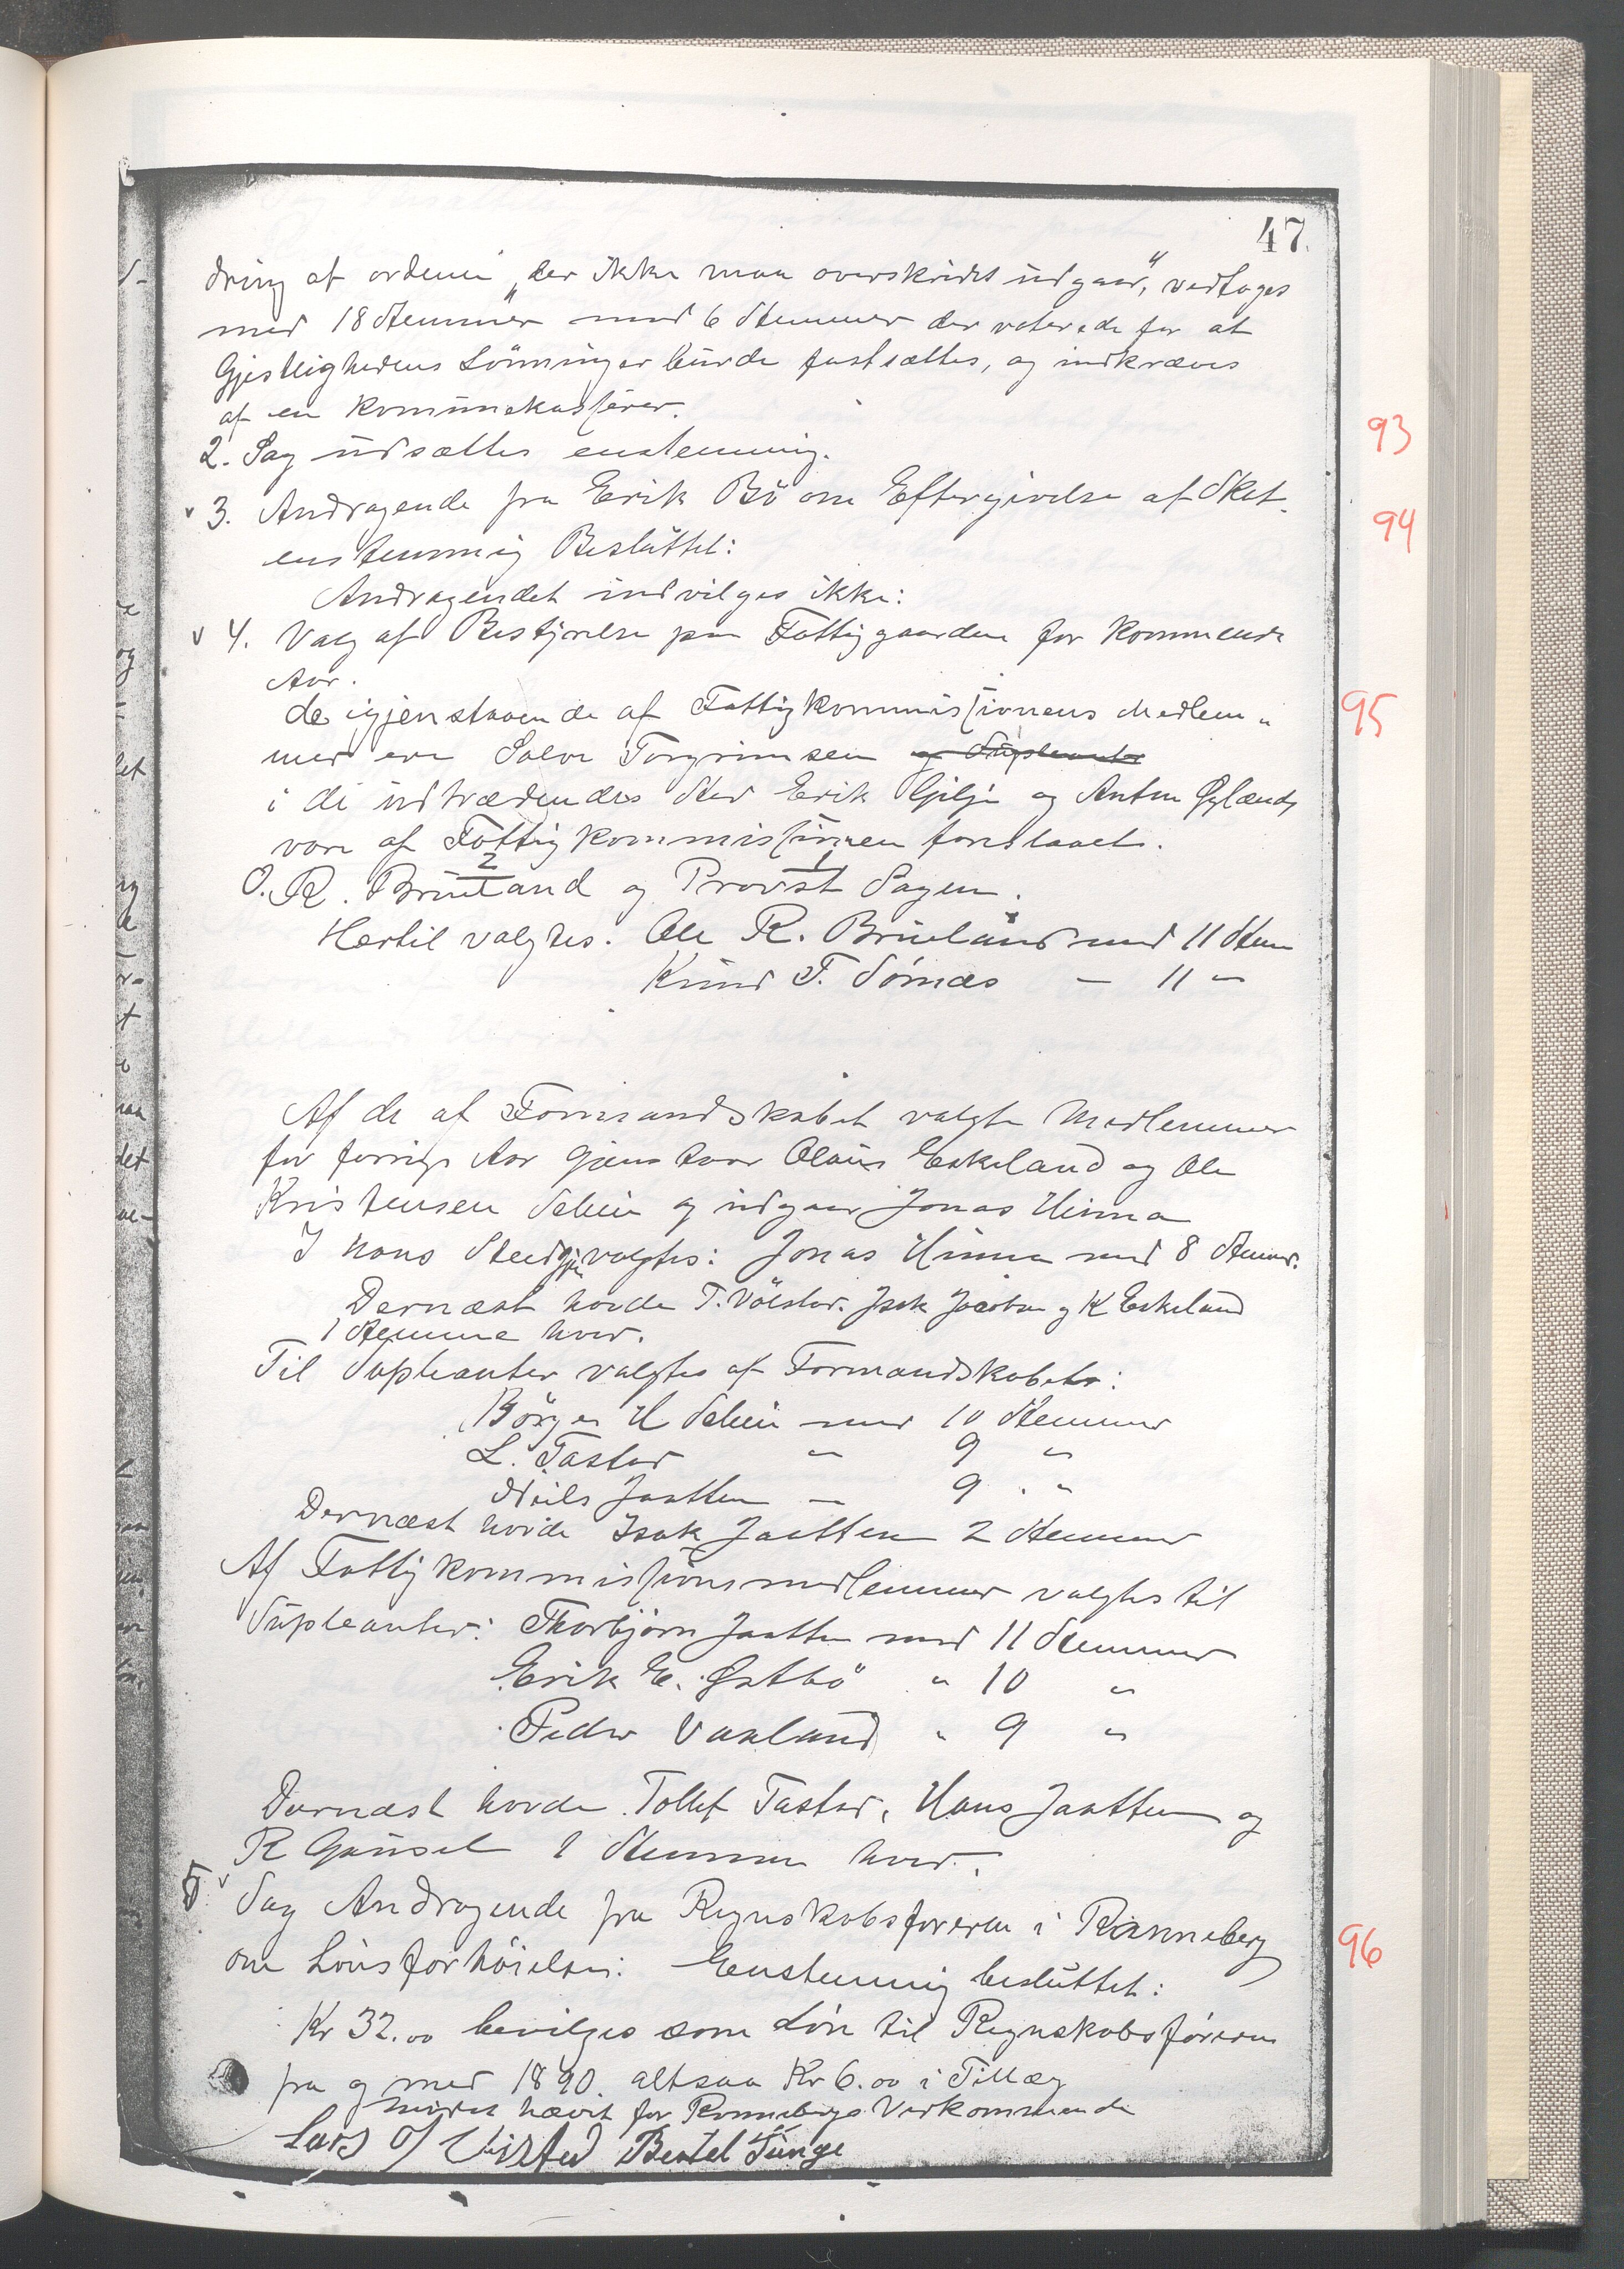 47.
dring af ordene „der ikke maa overskrides udgaar," vedtoges
med 18 Stemmer mod 6 Stemmer der voterede for at
Gjestlighedens Lønninger burde fastsættes, og indkræves
af en Kommunekasserer.
2. Sag udsættes enstemmig.
93
v 3. Andragende fra Erik Bö om Eftergivelse af Skat.
94
enstemmig Besluttet:
Andragendet indvilges ikke:
v 4. Valg af Bestyrelse paa Fattiggaarden for kommende
Aar.
de igjenstaaende af Fattigkommissionens Medlem-
95
mer ere Salve Torgrimsen og Supleanter
i de udtrædendes Sted Erik Gilje og Anton
vare af Fattigkommissionen foreslaaet.
2 1
O. R. Brueland og Provst Sagen.
Hertil valgtes. Ole R. Brueland med 11 Stem
Knud T. Sömæs — 11 "
Af de af Formandskabet valgte Medlemmer
for forrige Aar gjenstaar Olaus Eskeland og Ole
Kristensen Sebø og udgaar Jonas Hinna
I hans Sted gjenvalgtes: Jonas Hinna med 8 Stemmer.
Dernæst havde T. Vølstad. Isak Jacobsen og K Eskeland
1 Stemme hver.
Til Supleanter valgtes af Formandskabet:
Börge H med 10 Stemmer
L. Tastad " 9 "
Niels Jaatten — 9 "
Dernæst havde Isak Jaatten 2 Stemmer
Af Fattigkommissionsmedlemmer valgtes til
Supleanter: Thorbjørn Jaatten med 11 Stemmer
Erik E. Østbö " 10 "
Peder Vaaland " 9 "
Dernæst havde Tollef Tastad, Hans Jaatten og
R Gausel 1 Stemme hver.
5 v Sag Andragende fra Regnskabsføreren i Ranneberg
96
om Lønsforhöielse: Eenstemmig besluttet:
Kr 32.00 bevilges som Løn til Regnskabsføreren
fra og med 1890. altsaa Kr 6.00 i Tillæg
for Rannebergs Vedkommende
Lars O/ Bertel Tunge